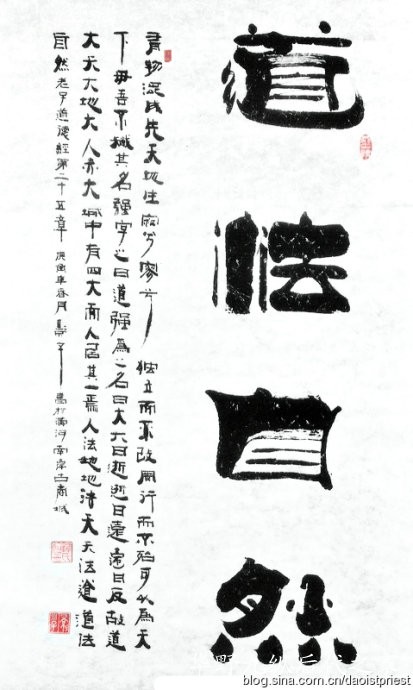 道法自然
有物混成先天地生寂兮寥兮獨立而不改周行而不殆可以為天
下母吾不其名强字之曰道强為之名曰大大曰逝逝曰遠遠曰反故道
大天大地大人亦大域中有四大而人居其一焉人法地地法天天法道道法
自然 老子道德經第二十五章 庚寅年春月 書於黄河南岸古商城
blog.sina.com.cn/daoistpriest